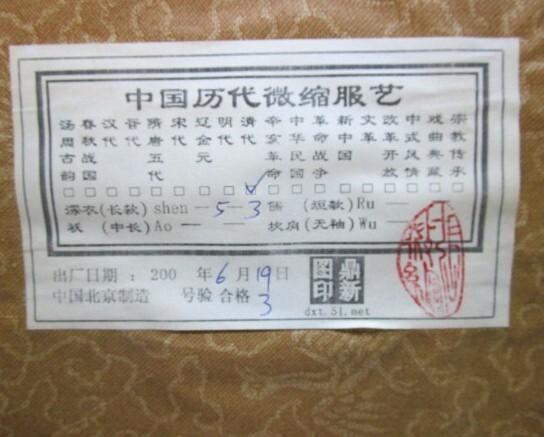 中国历代微缩服艺
汤周古韵
春秋战国
汉代
晋代
隋唐五代
宋代
辽金元
明代
清代
辛亥革命
中华民国
革命战争
新中国
文革
改革开放
中式风情
戏曲典藏
宗教传承
深衣(长款)shen — 5 — 3 襦 (短款)Ru —
袄 (中长)Ao — — 坎肩(无袖)Wu —
出厂日期：200 年6月19日
中国北京制造 号验合格 3
鼎新图印
dxt.51.net